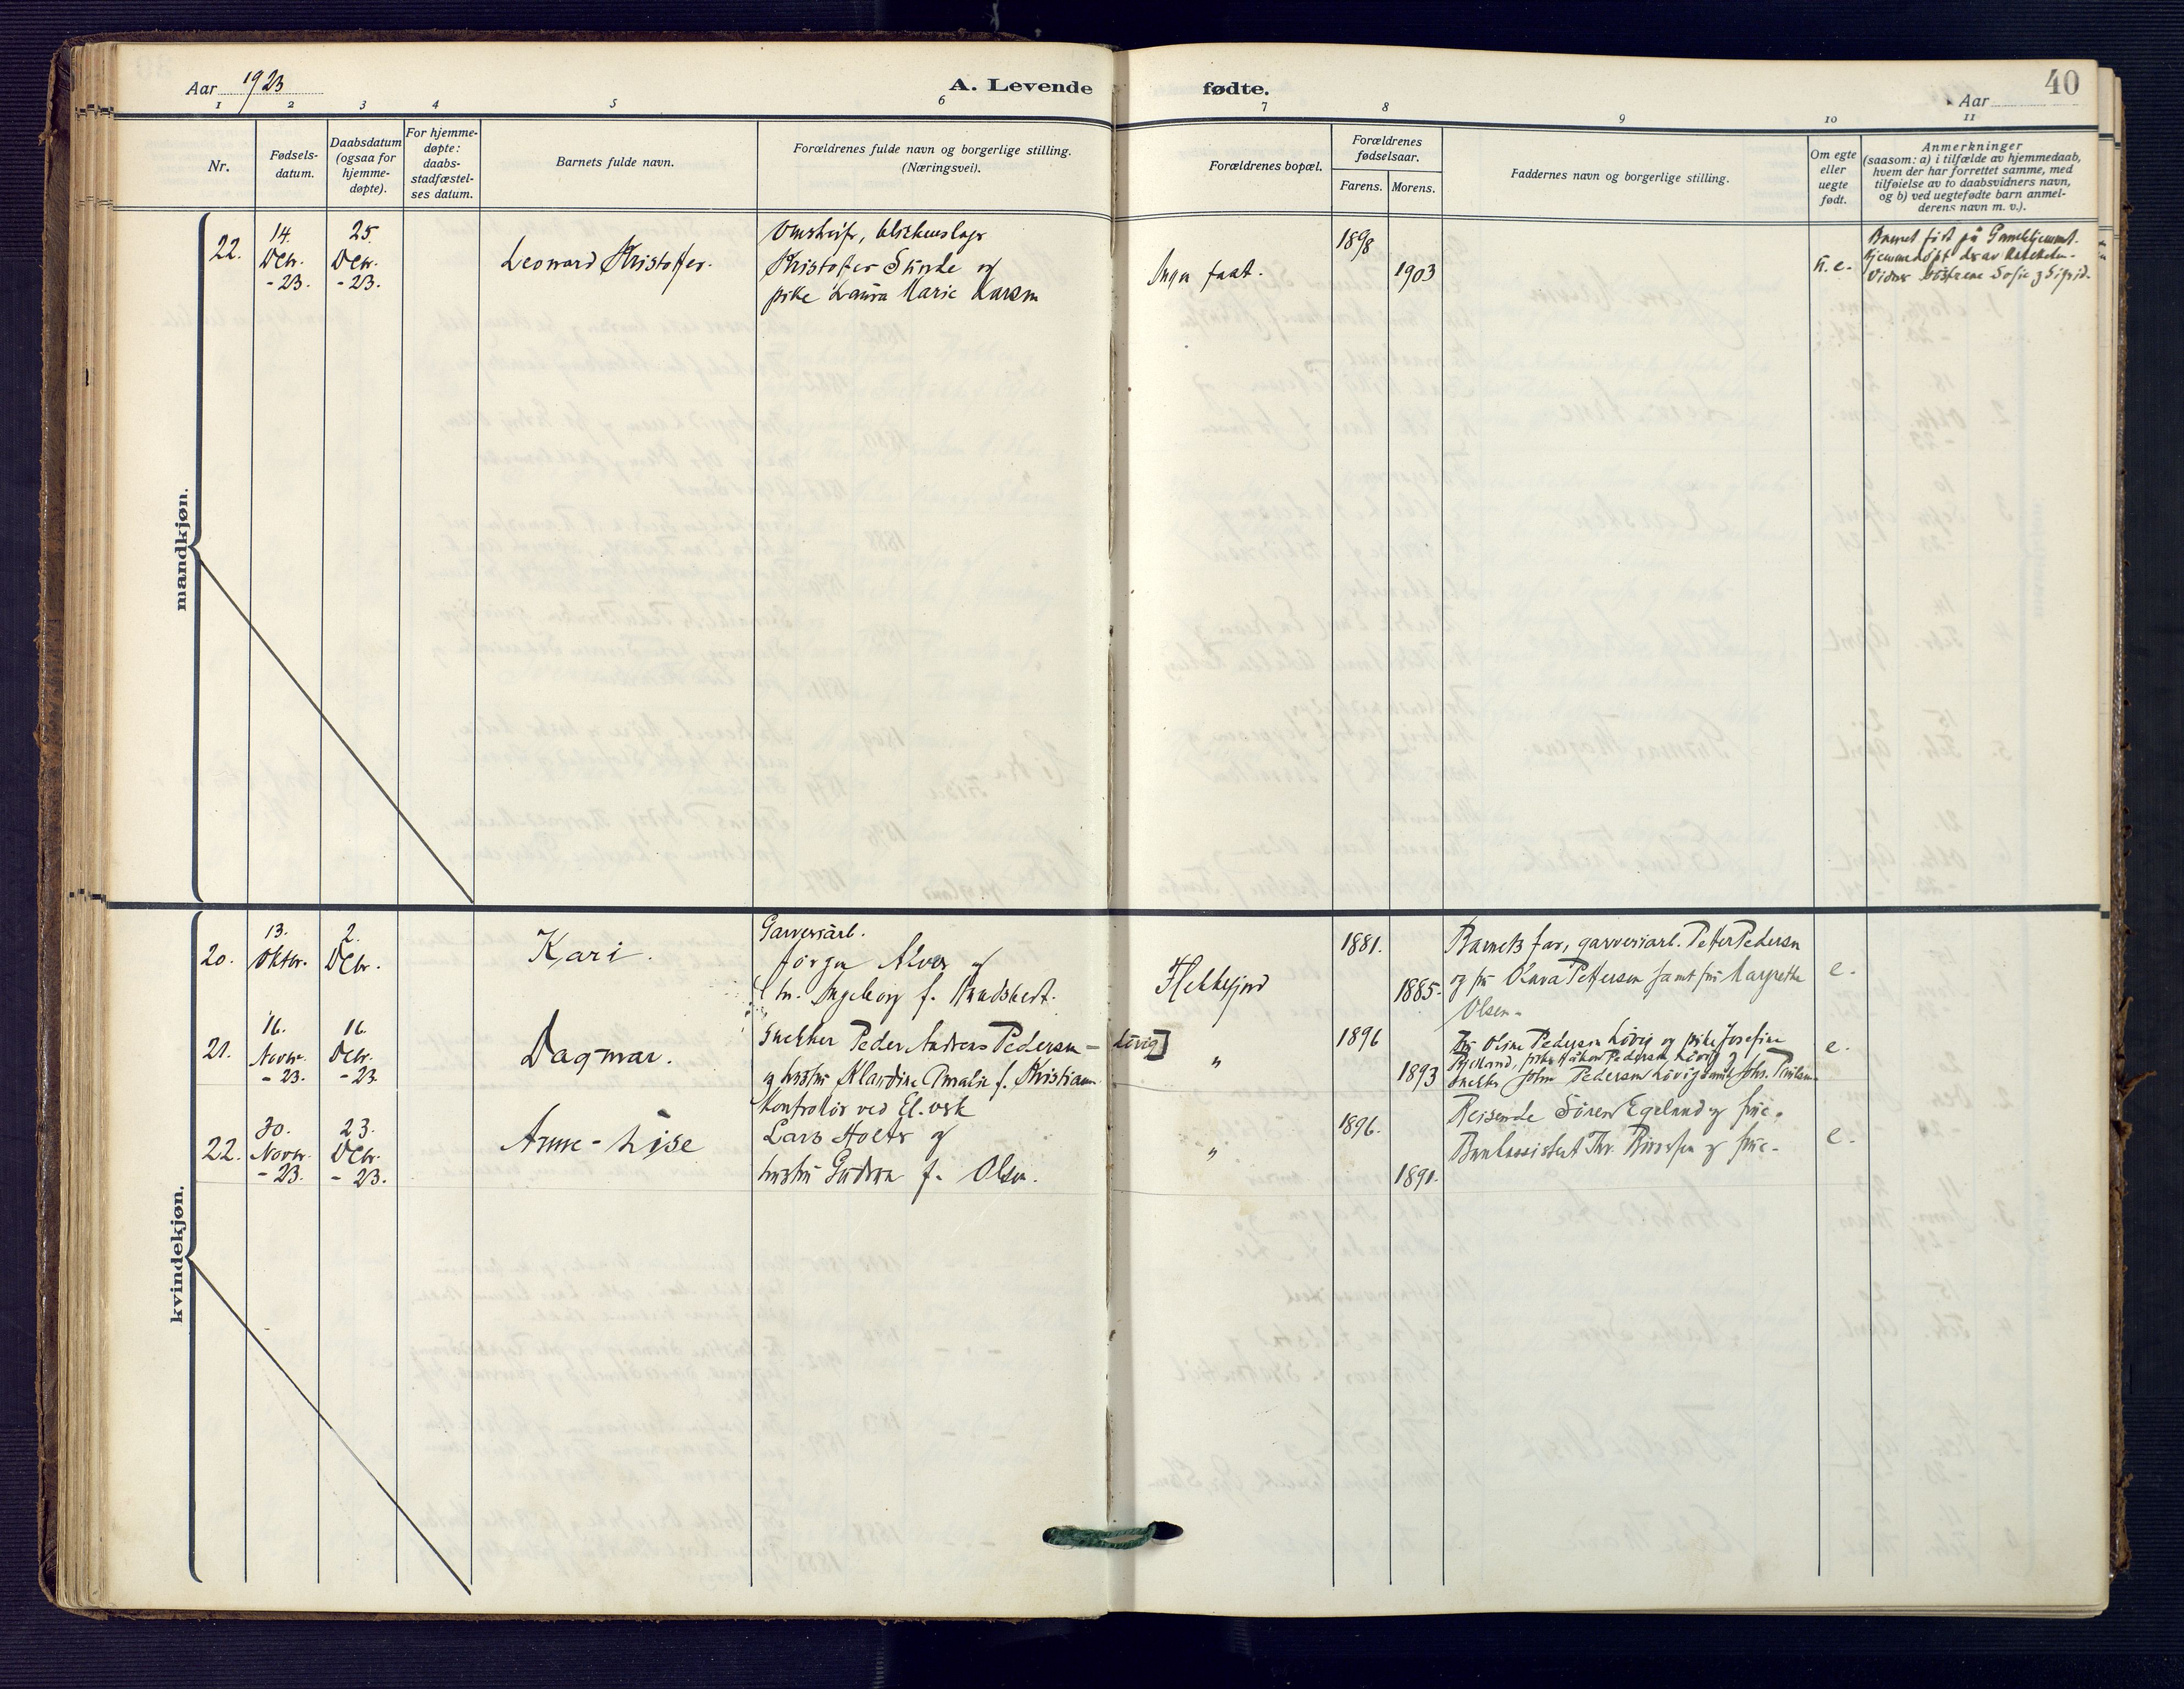 Aar 1923
A. Levende
fødte.
40
Aar
1 2 3 4 5 6 7 8 9 10 11
Nr.
Fødsels-
datum.
Daabsdatum
(ogsaa for
hjemme-
døpte).
For hjemme-
døpte:
daabs-
stadfæstel-
ses datum.
Barnets fulde navn.
Forældrenes fulde navn og borgerlige stilling.
(Næringsvei).
Forældrenes bopæl.
Forældrenes
fødselsaar.
Farens. Morens.
Faddernes navn og borgerlige stilling.
Om egte
eller
uegte
født.
Anmerkninger
(saasom: a) i tilfælde av hjemmedaab,
hvem der har forrettet samme, med
tilføielse av to daabsvidners navn,
og b) ved uegtefødte barn anmel-
derens navn m. v.).
mandkjøn.
22.
14.
Dcbr.
- 23.
25.
Dcbr.
- 23.
Leonard Kristoffer.
blikkenslager
Kristoffer og
pike Laura Marie Larsen
Ingen fast.
1898
1903
u. e.
Barnet født på
Hjemmedøpt der av
Vidner Søstrene Sofie og Sigrid.
kvindekjøn.
20.
13.
Oktbr.
2.
Dcbr.
Kari.
Garveriarb.
Jørgen og
h. Ingeborg f.
Flekkefjord
1881.
1885.
Barnets far, garveriarb. Petter Pedersen
og fru Petersen samt fru Margrethe
Olsen.
e.
21.
16.
Novbr.
- 23.
16.
Dcbr.
- 23.
Dagmar.
Snekker Peder Andreas Pedersen -
og hustru Klardine Amalie f. Kristiansen
Løvig]
"
1896
1893
Fru Oline Pedersen Løvig og pike Josefine
pike Håkon Pedersen Løvig
snekker John Pedersen Løvig samt Johs.
e.
22.
30.
Novbr.
- 23.
23.
Dcbr.
- 23.
Anne-Lise
Kontrolør ved El.verk
Lars og
hustru Gudrun f. Olsen.
"
1896.
1890.
Reisende Søren Egeland og frue.
Bankassistent Thv. og frue.
e.